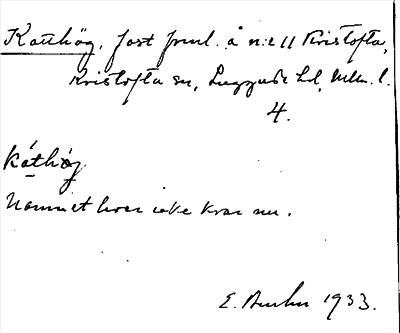 Katthög, fast fornl. å n:r 11 Kristofta,
Kristofta sn, Luggude hd, Mlm. l.
4.
kát hǿg
Namnet lever icke kvar nu.
E. 1933.